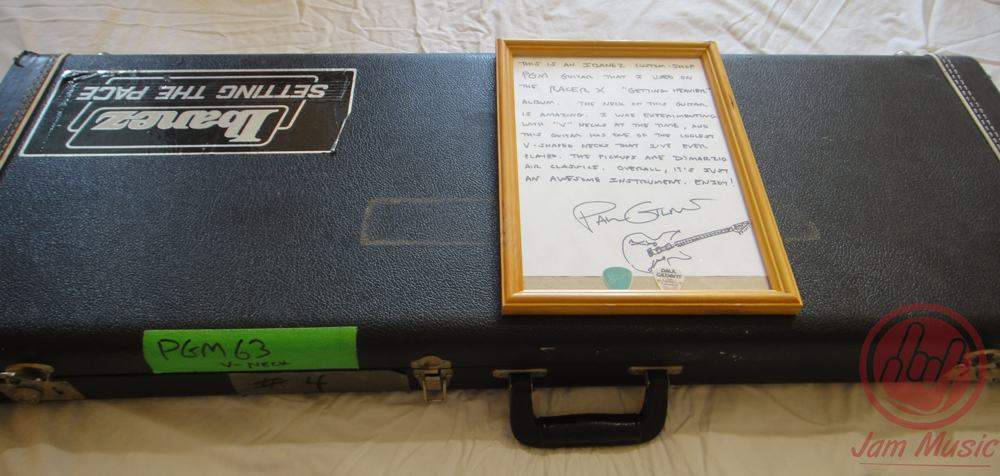 Ibanez
SETTING THE PACE
THIS IS AN IBANEZ CUSTOM-SHOP
PGM GUITAR THAT I USED ON
THE RACER X "GETTING HEAVIER"
ALBUM. THE NECK ON THIS GUITAR
IS AMAZING. I WAS EXPERIMENTING
WITH "V" NECKS AT THE TIME, AND
THIS GUITAR HAS ONE OF THE COOLEST
V-SHAPED NECKS THAT I'VE EVER
PLAYED. THE PICKUPS ARE DIMARZIO
AIR CLASSICS. OVERALL, IT'S JUST
AN AWESOME INSTRUMENT. ENJOY!
Paul Gilbert
PAUL
GILBERT
PGM 63
V-NECK
# 4
Jam Music